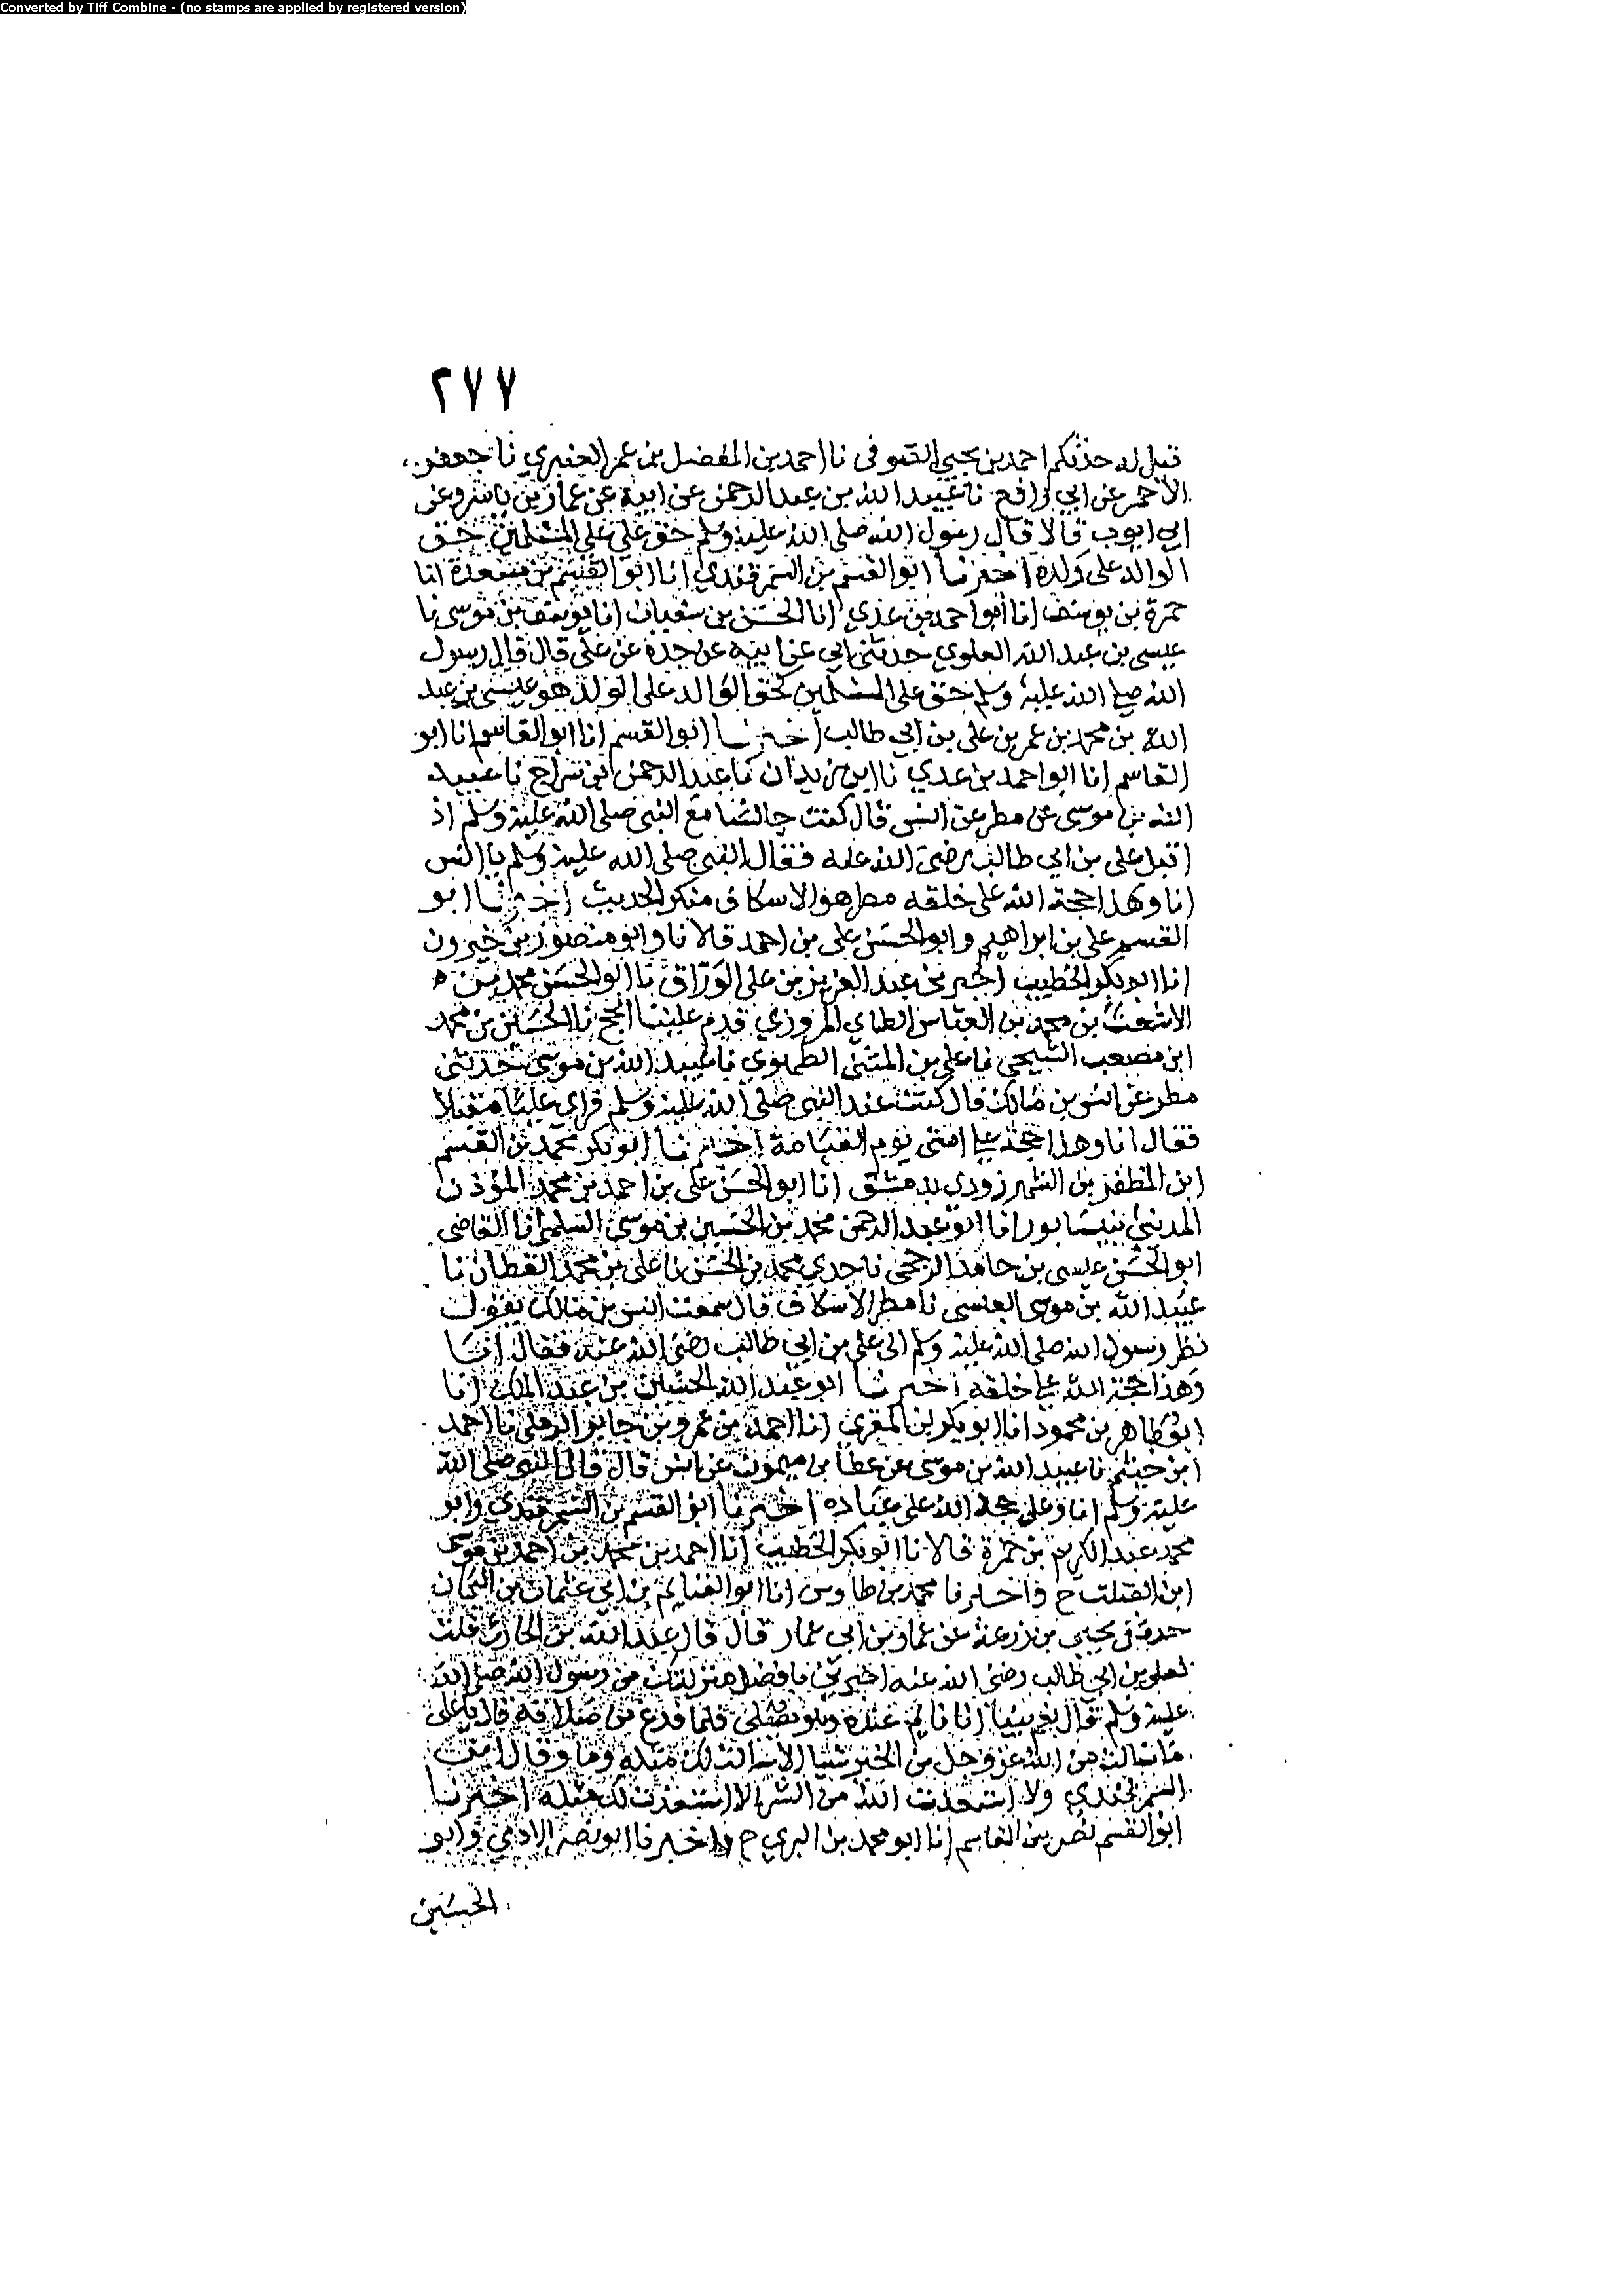 Converted by Tiff Combine - (no stamps are applied by registered version)
٢٧٧
قيل له حدثكم احمد بن يحيى الصوفى نا احمد بن المفضل بن عمر العنبري نا جعفر
الاحمر عن ابي رافع نا عبيد الله بن عبد الرحمن عن ابيه عن عمار بن ياسر وعن
ابي ايوب قالا قال رسول الله صلى الله عليه وسلم حق علي على المسلمين حق
الوالد على ولده اخبرنا ابو القسم بن السمرقندي انا ابو القسم بن مسعدة انا
حمزة بن يوسف انا ابو احمد بن عدي انا الحسن بن سفيان انا يوسف بن موسى نا
عيسى بن عبد الله العلوي حدثني ابي عن ابيه عن جده عن علي قال قال رسول
الله صلى الله عليه وسلم حق علي المسلمين كحق الوالد على الولد هو عيسى بن عبد
الله بن محمد بن عمر بن على بن ابي طالب اخبرنا ابو القسم انا ابو القاسم انا ابو
القاسم انا ابو احمد بن عدي نا ابن زيدان نا عبد الرحمن بن سراج نا عبيد
الله بن موسى عن مطر عن انس قال كنت جالسا مع النبى صلى الله عليه وسلم اذ
اقبل على بن ابي طالب رضى الله عنه فقال النبي صلى الله عليه وسلم يا انس
انا وهذا حجة الله على خلقه مطر هو الاسكاف منكر الحديث اخبرنا ابو
القسم على بن ابراهيم وابو الحسن على بن احمد قالا نا وابو منصور بن خيرون
انا ابو بكر الخطيب اخبرني عبد العزيز بن على الوراق نا ابو الحسن محمد بن
الاشعث بن محمد بن العباس الطاي المروزي قدم علينا الحج نا الحسين بن محمد
ابن مصعب السنجي نا على بن المثنى الطهوي نا عبيد الله بن موسى حدثني
مطر عن انس بن مالك قال كنت عند النبى صلى الله عليه وسلم فراى عليا مقبلا
فقال انا وهذا حجة على امتى يوم القيامة اخبرنا ابو بكر محمد بن القسم
ابن المظفر بن الشهرزوري بدمشق انا ابو الحسن على بن احمد بن محمد المؤذن
المديني بنيسابور انا ابو عبد الرحمن محمد بن الحسين بن موسى السلمي انا القاضى
ابو الحسن عيسى بن حامد الرخجي نا جدي محمد بن الحسن نا على بن محمد القطان نا
عبيد الله بن موسى العبسى نا مطر الاسكاف قال سمعت انس بن مالك يقول
نظر رسول الله صلى الله عليه وسلم الى على بن ابي طالب رضى الله عنه فقال انا
وهذا حجة الله على خلقه اخبرنا ابو عبد الله الحسين بن عبد الملك انا
ابو طاهر بن محمود انا ابو بكر بن المقرى انا احمد بن عمرو بن جابر الرملى نا احمد
ابن خيثم نا عبيد الله بن موسى عن عطا بن ميمون عن انس قال قال النبى صلى الله
عليه وسلم انا وعلى حجة الله على عباده اخبرنا ابو القسم بن السمرقندي وابو
محمد عبد الكريم بن حمزة قالا نا ابو بكر الخطيب انا احمد بن محمد بن احمد بن موسى
ابن الصلت ح واخبرنا محمد بن طاوس انا ابو الغنايم بن ابي عثمان بن
يحيى بن زرعة عن عمار بن ابي عمار قال قال عبد الله بن الحارث قلت
لعلى بن ابي طالب رضى الله عنه اخبرني بافضل منزلتك من رسول الله صلى الله
عليه وسلم قال نعم بينا انا نايم عنده وهو يصلى فلما فرغ من صلاته قال يا على
ما سالت من الله عز وجل من الخير شيا الا سالت لك مثله وما وقال ابن
السمرقندي ولا استعذت الله من الشر الا استعذت لك مثله اخبرنا
ابو القسم نصر بن القاسم انا ابو محمد بن البري ح واخبرنا ابو نصر وابو
الحسين